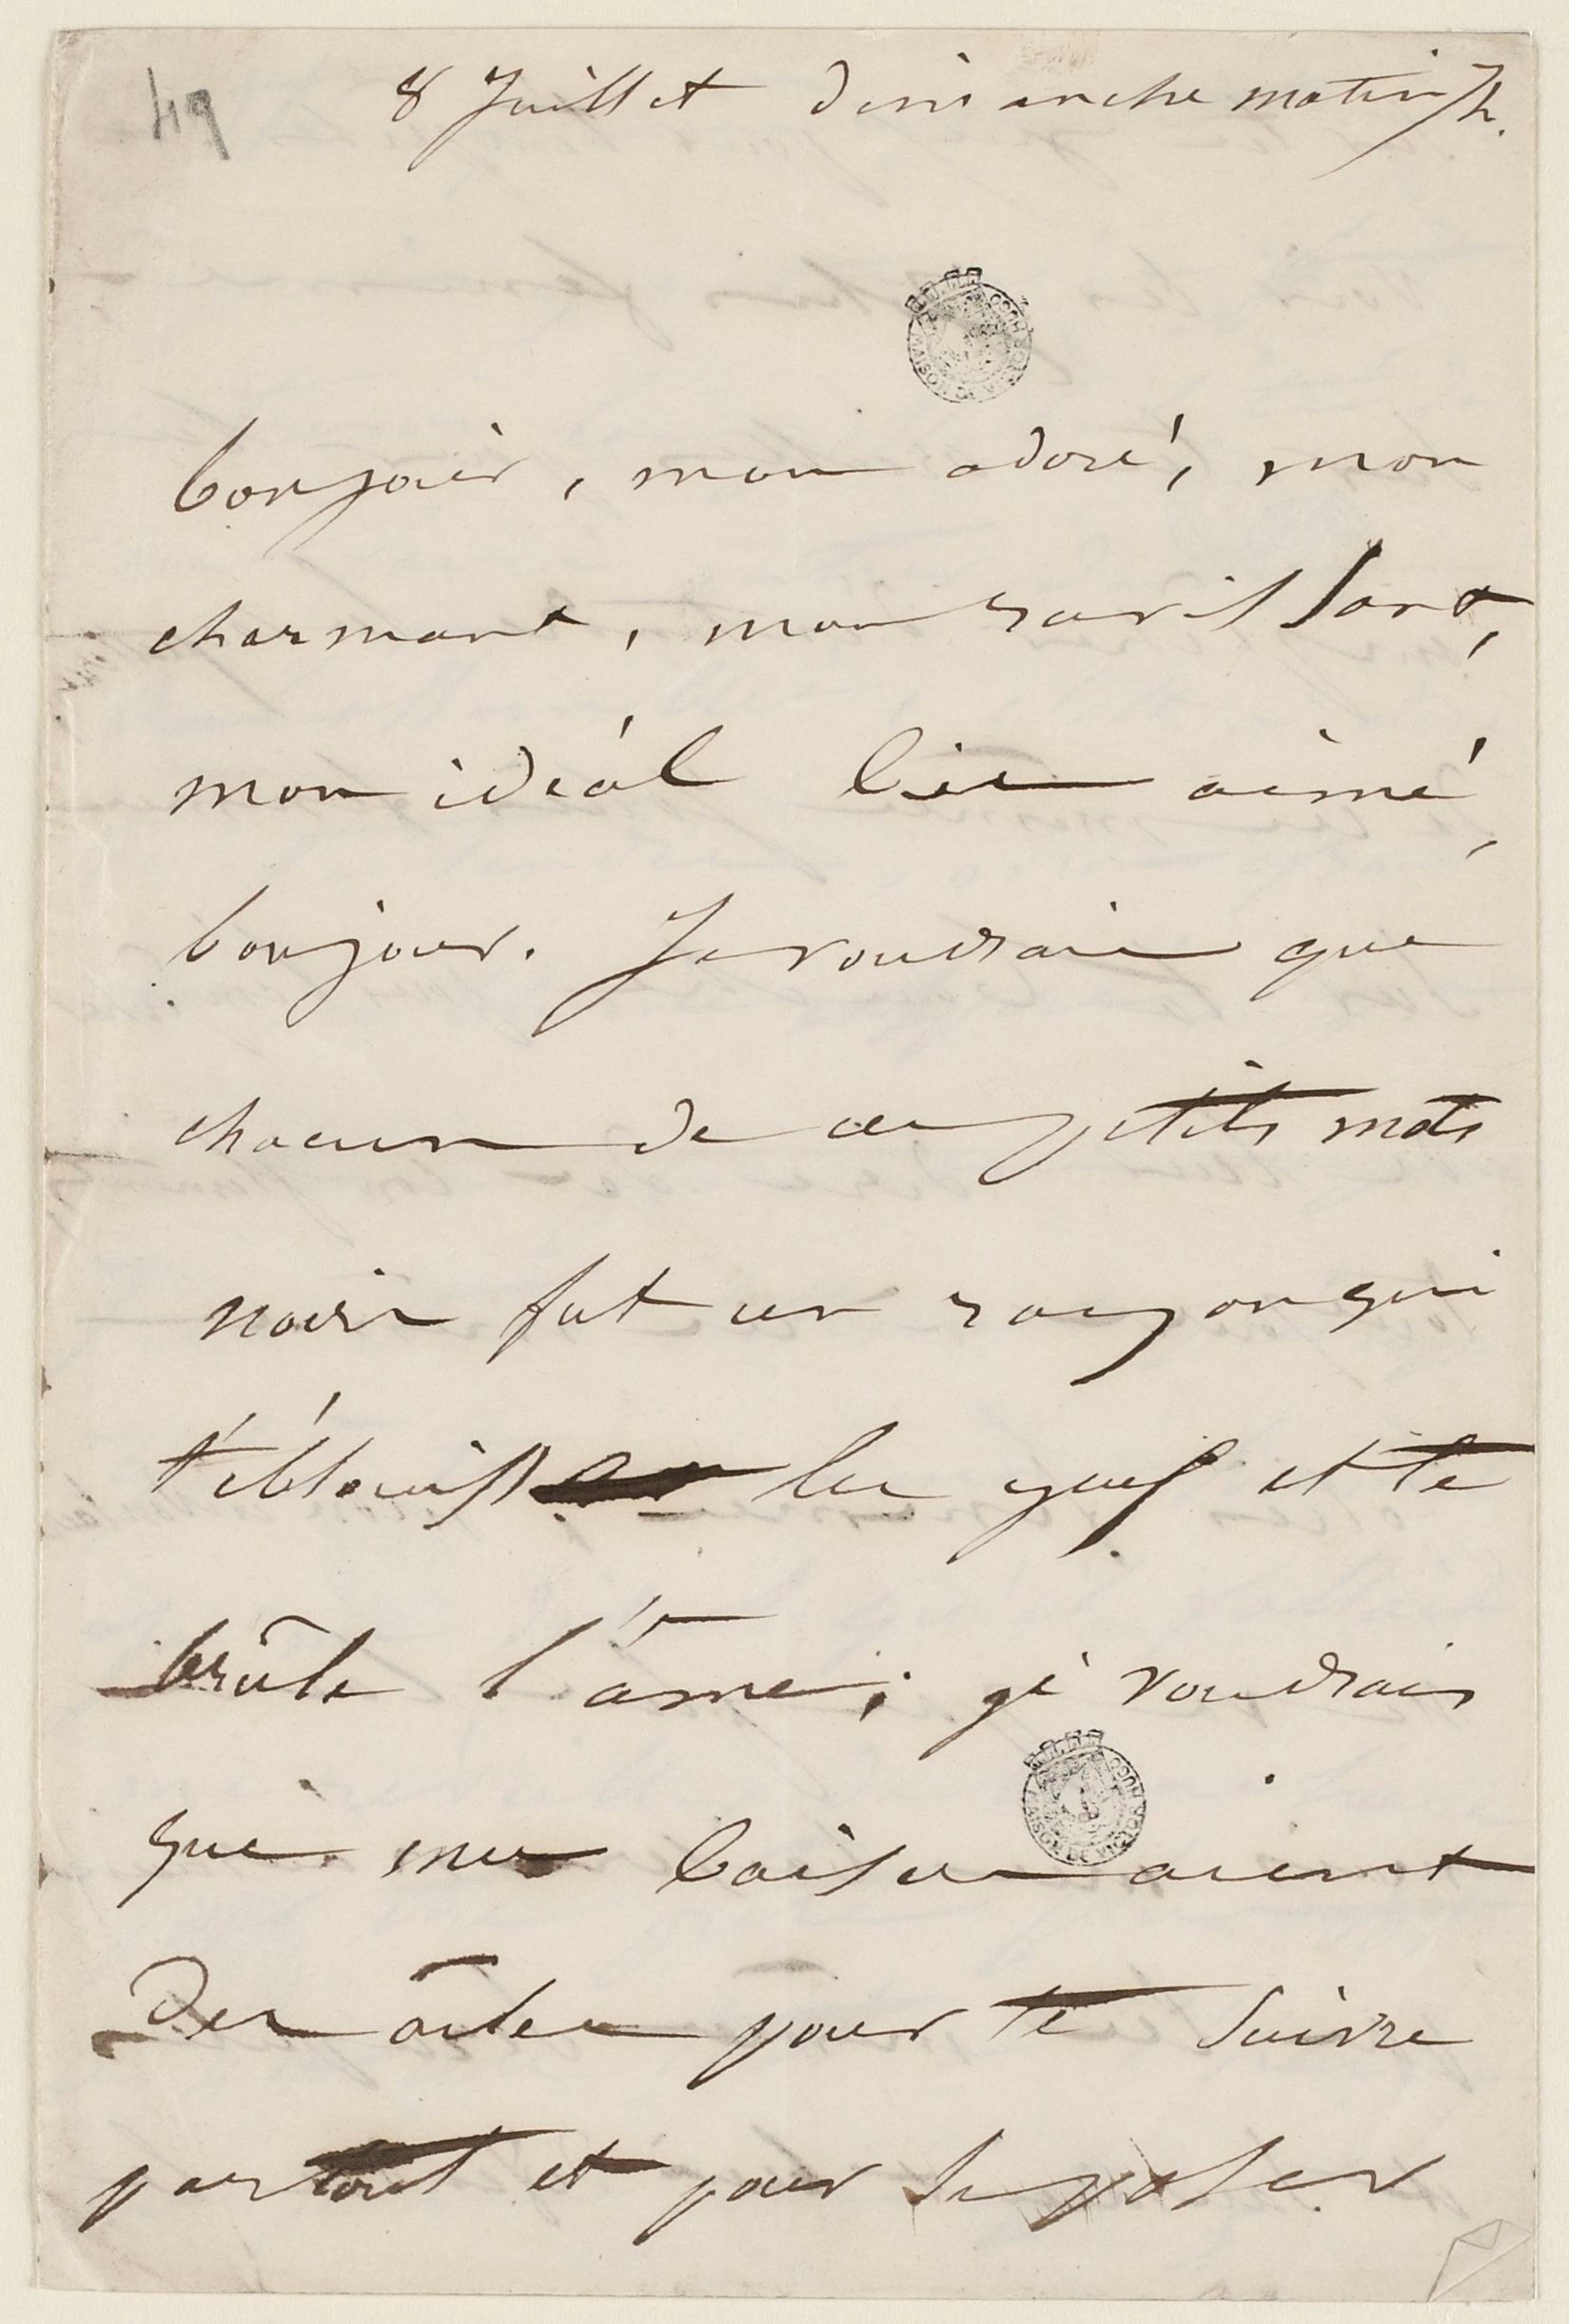 49
8 Juillet dimanche matin 7h.
MAISON DE VICTOR HUGO
bonjour, mon adoré, mon
charmant, mon ravissant,
mon idéal bien aimé,
bonjour. Je voudrais que
chacun de ces petits mots
noirs fut un rayon qui
t'éblouisse les yeux et te
brûle l'âme ; je voudrais
que mes baisers aient
MAISON DE VICTOR HUGO
des aîles pour te suivre
partout et pour se poser